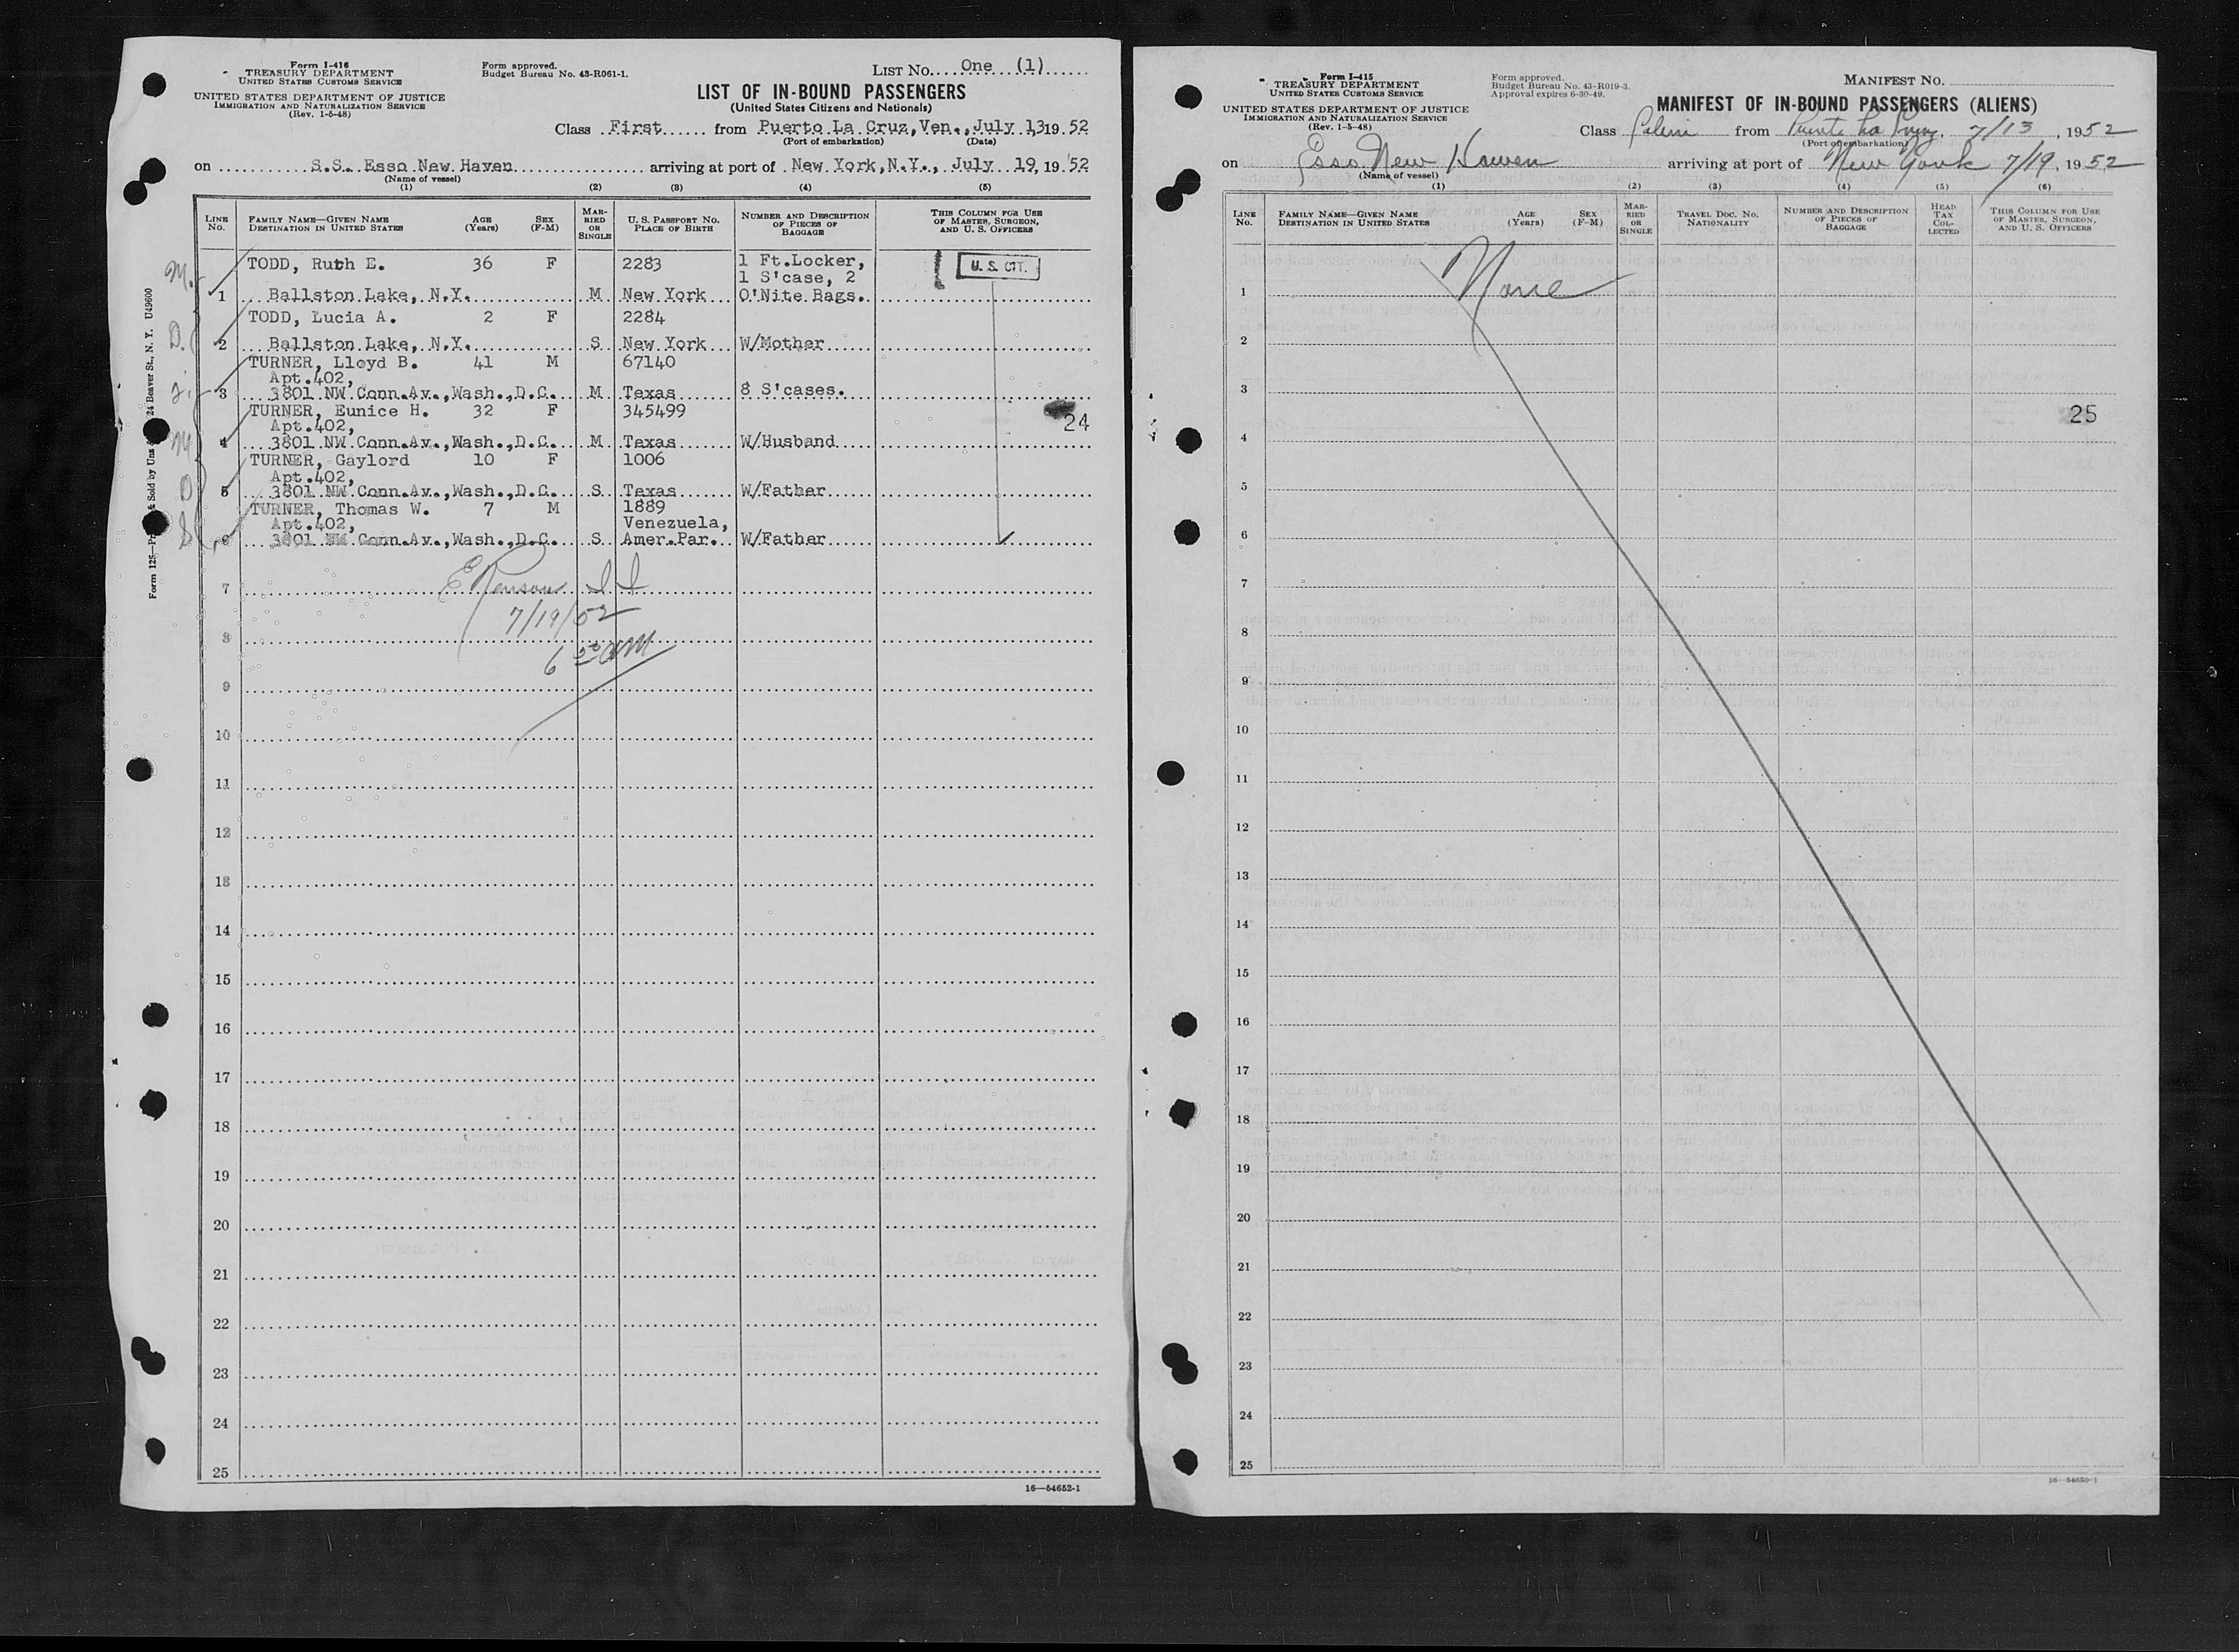 Form I-416
TREASURY DEPARTMENT
UNITED STATES CUSTOMS SERVICE
UNITED STATES DEPARTMENT OF JUSTICE
IMMIGRATION AND NATURALIZATION SERVICE
(Rev. 1-5-48)
Form approved.
Budget Bureau No. 43-R061-1.
LIST No. One (1)
LIST OF IN-BOUND PASSENGERS
(United States Citizens and Nationals)
Class First from Puerto La Cruz, Ven., July 13 19 52
(Port of embarkation) (Date)
on S.S. Esso New Haven arriving at port of New York, N.Y., July 19, 19 52
(Name of vessel)
(1) (2) (3) (4) (5)
LINE No. FAMILY NAME—GIVEN NAME DESTINATION IN UNITED STATES AGE (Years) SEX (F-M) MARRIED OR SINGLE U. S. PASSPORT No. PLACE OF BIRTH NUMBER AND DESCRIPTION OF PIECES OF BAGGAGE THIS COLUMN FOR USE OF MASTER, SURGEON, AND U. S. OFFICERS
TODD, Ruth E. 36 F 2283 1 Ft.Locker, U. S. CIT.
1 S'case, 2
1 Ballston Lake, N.Y. M New York O'Nite Bags.
TODD, Lucia A. 2 F 2284
2 Ballston Lake, N.Y. S New York W/Mother
TURNER, Lloyd B. 41 M 67140
Apt.402,
3 3801 NW Conn.Av.,Wash.,D.C. M Texas 8 S'cases.
TURNER, Eunice H. 32 F 345499
Apt.402, 24
4 3801 NW Conn.Av.,Wash.,D.C. M Texas W/Husband
TURNER, Gaylord 10 F 1006
Apt.402,
5 3801 NW Conn.Av.,Wash.,D.C. S Texas W/Father
TURNER, Thomas W. 7 M 1889
Apt.402, Venezuela,
6 3801 NW Conn.Av.,Wash.,D.C. S Amer.Par. W/Father
7
7/19/52
8
AM
9
10
11
12
13
14
15
16
17
18
19
20
21
22
23
24
25
16—54652-1
Form I-415
TREASURY DEPARTMENT
UNITED STATES CUSTOMS SERVICE
UNITED STATES DEPARTMENT OF JUSTICE
IMMIGRATION AND NATURALIZATION SERVICE
(Rev. 1-5-48)
Form approved.
Budget Bureau No. 43-R019-3.
Approval expires 6-30-49.
MANIFEST No.
MANIFEST OF IN-BOUND PASSENGERS (ALIENS)
Class from 7/13, 1952
(Port of embarkation)
on Esso New Haven arriving at port of New York 7/19, 1952
(Name of vessel)
(1) (2) (3) (4) (5) (6)
LINE No. FAMILY NAME—GIVEN NAME DESTINATION IN UNITED STATES AGE (Years) SEX (F-M) MARRIED OR SINGLE TRAVEL DOC. No. NATIONALITY NUMBER AND DESCRIPTION OF PIECES OF BAGGAGE HEAD TAX COLLECTED THIS COLUMN FOR USE OF MASTER, SURGEON, AND U. S. OFFICERS
None
1
2
3
25
4
5
6
7
8
9
10
11
12
13
14
15
16
17
18
19
20
21
22
23
24
25
16—54650-1